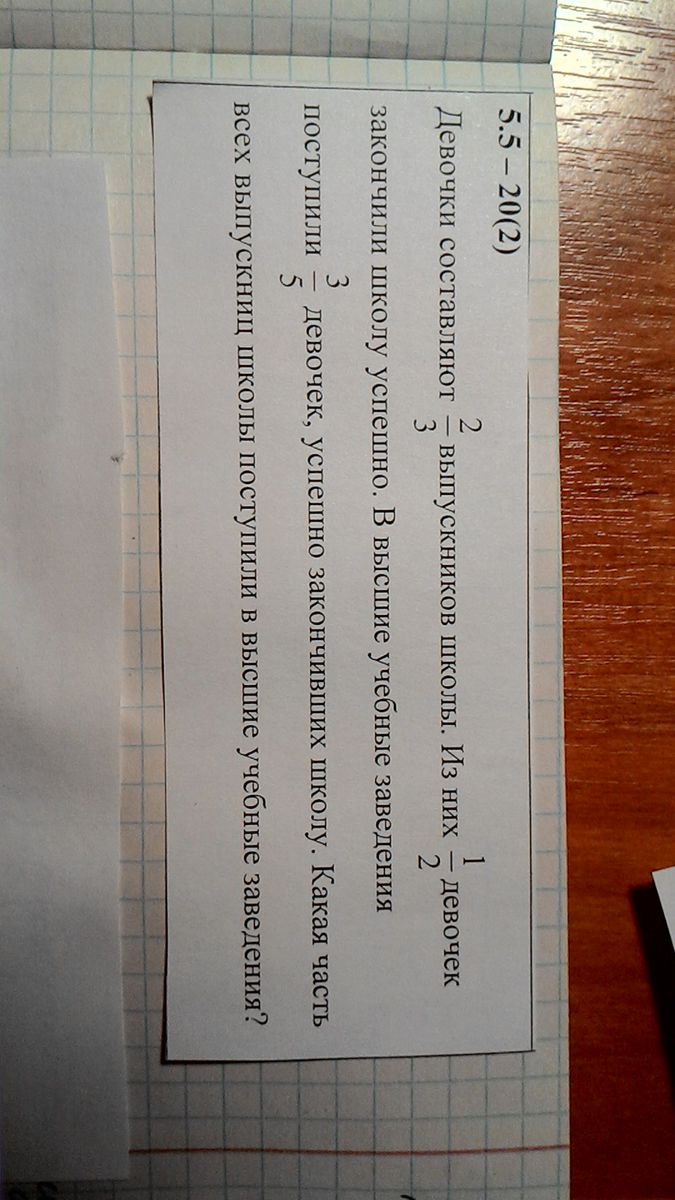 5.5 – 20(2)
Девочки составляют 2/3 выпускников школы. Из них 1/2 девочек
закончили школу успешно. В высшие учебные заведения
поступили 3/5 девочек, успешно закончивших школу. Какая часть
всех выпускниц школы поступили в высшие учебные заведения?